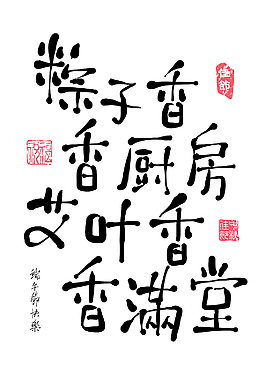 粽子香
香厨房
艾叶香
香满堂
端午節快樂
佳節